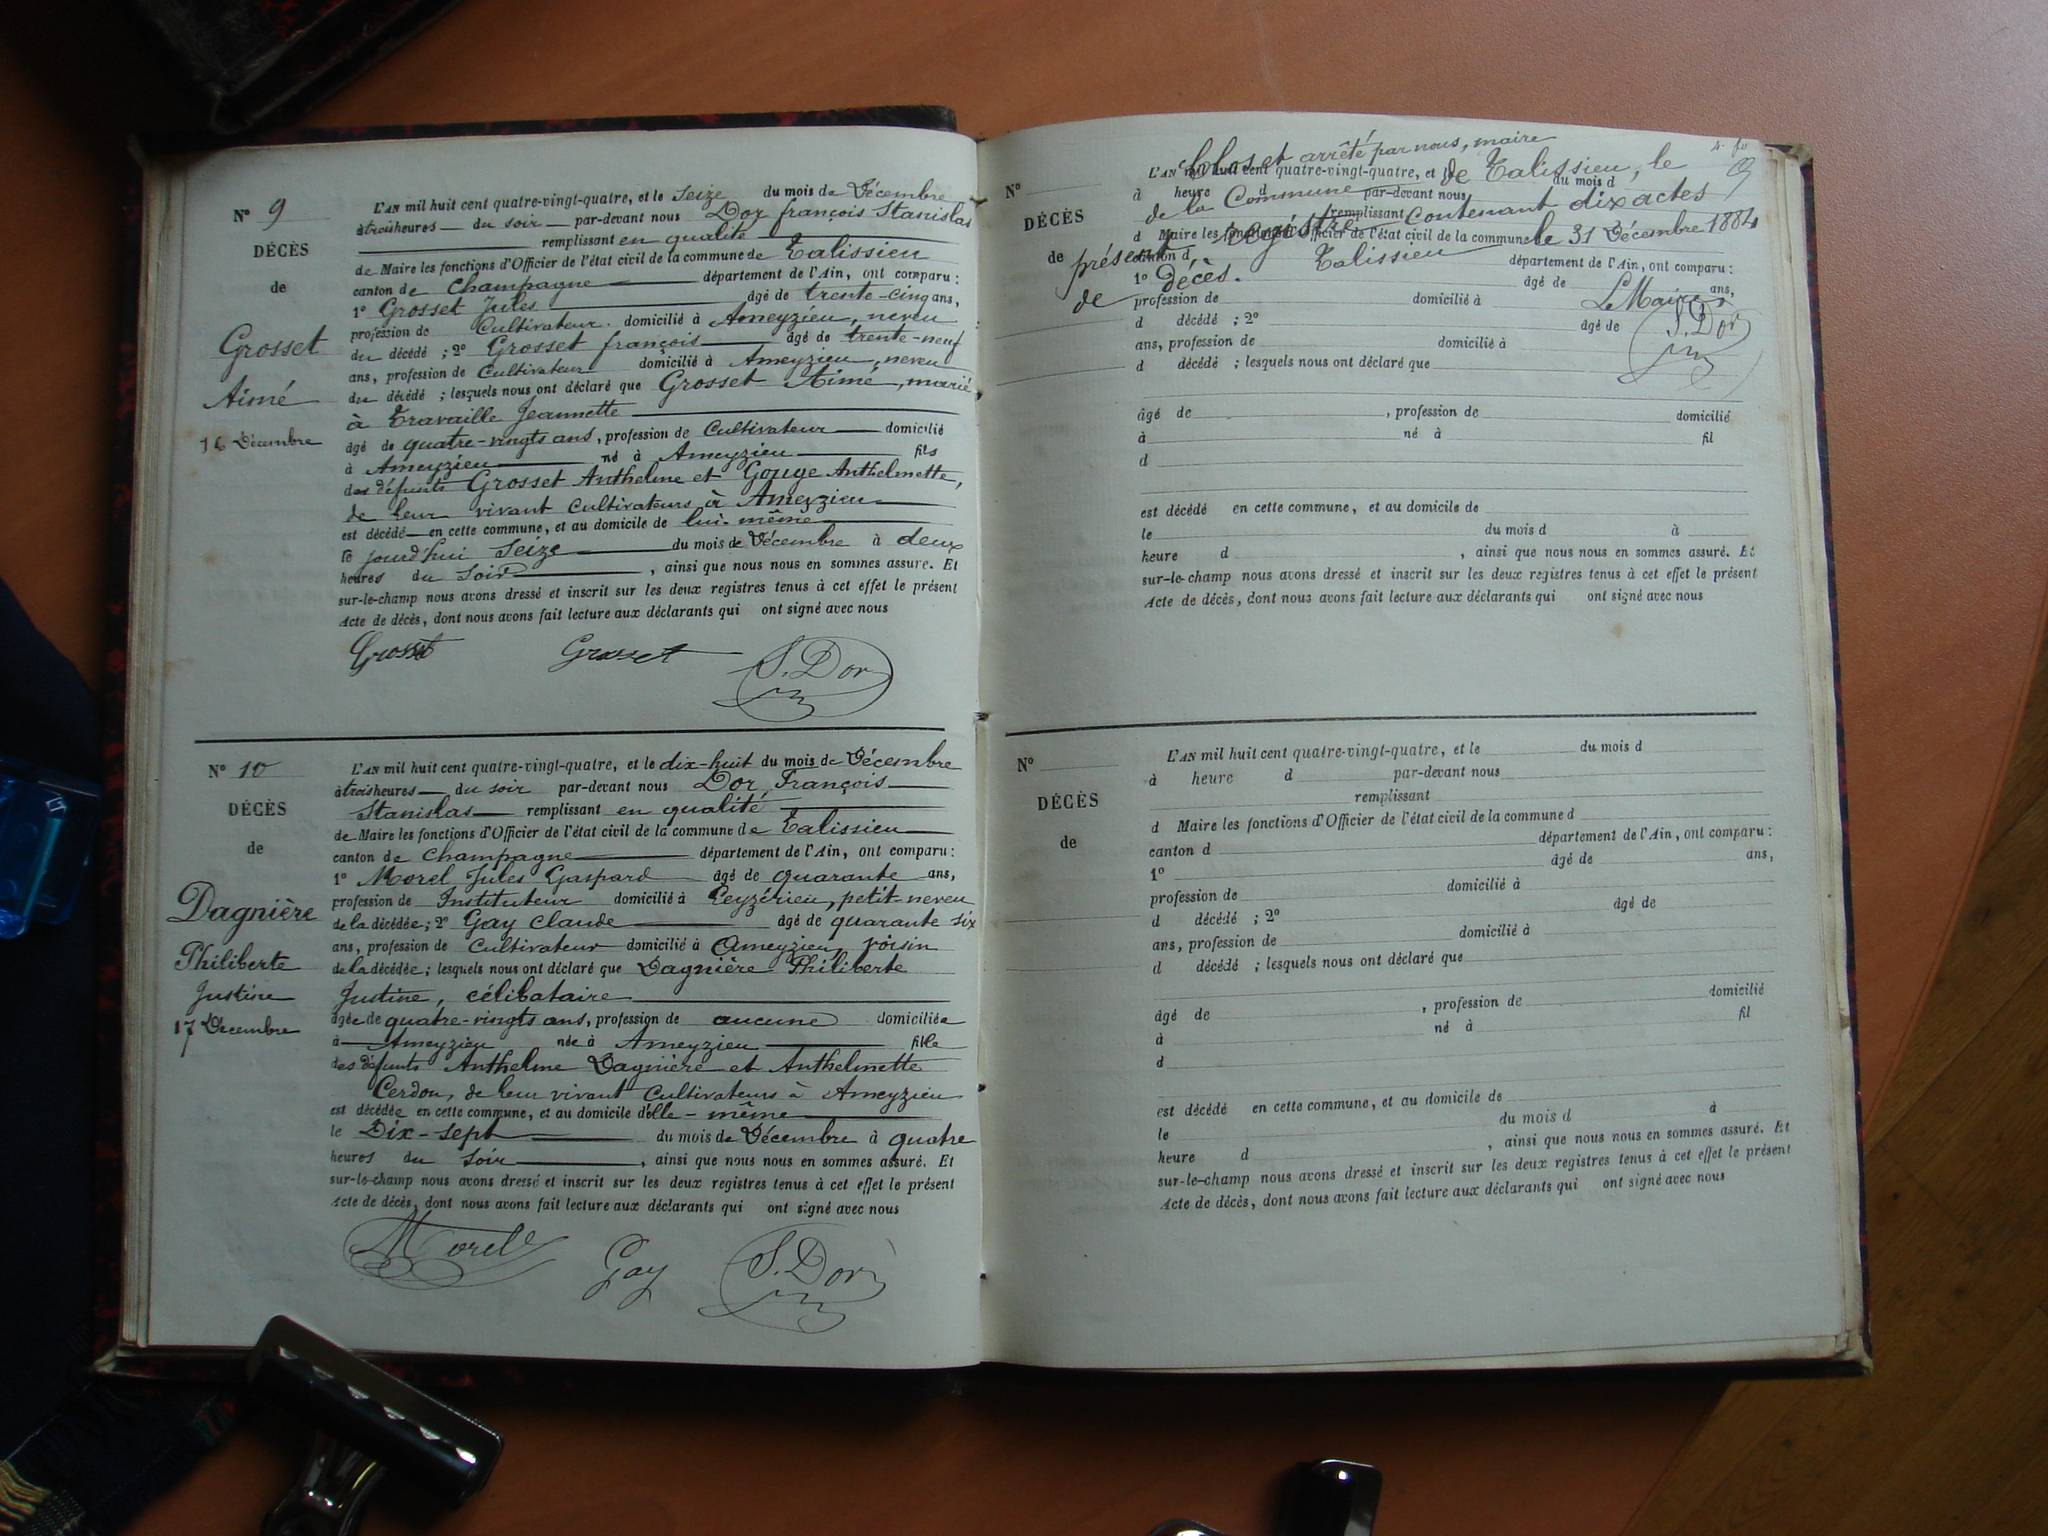 N° 9
DÉCÈS
de
Grosset
Aimé
16 Décembre
L'AN mil huit cent quatre-vingt-quatre, et le seize du mois de Décembre
à trois heures du soir par-devant nous Dor françois Stanislas
remplissant en qualité
de Maire les fonctions d'Officier de l'état civil de la commune de Talissieu
canton de Champagne département de l'Ain, ont comparu :
1° Grosset Jules âgé de trente-cinq ans,
profession de Cultivateur domicilié à Ameyzieu, neveu
du décédé ; 2° Grosset françois âgé de trente-neuf
ans, profession de Cultivateur domicilié à Ameyzieu, neveu
du décédé ; lesquels nous ont déclaré que Grosset Aimé, marié
à Travaille Jeannette
âgé de quatre-vingts ans, profession de Cultivateur domicilié
à Ameyzieu né à Ameyzieu fils
des défunts Grosset Anthelme et Gouge Anthelmette,
de leur vivant Cultivateurs à Ameyzieu
est décédé en cette commune, et au domicile de lui-même
le jourd'hui seize du mois de Décembre à deux
heures du soir, ainsi que nous nous en sommes assuré. Et
sur-le-champ nous avons dressé et inscrit sur les deux registres tenus à cet effet le présent
Acte de décès, dont nous avons fait lecture aux déclarants qui ont signé avec nous
Grosset Grosset S. Dor
N° 10
DÉCÈS
de
Dagnière
Philiberte
Justine
17 Décembre
L'AN mil huit cent quatre-vingt-quatre, et le dix-huit du mois de Décembre
à trois heures du soir par-devant nous Dor, François
Stanislas remplissant en qualité
de Maire les fonctions d'Officier de l'état civil de la commune de Talissieu
canton de Champagne département de l'Ain, ont comparu :
1° Morel Jules Gaspard âgé de quarante ans,
profession de Instituteur domicilié à Ceyzérieu, petit-neveu
de la décédée ; 2° Gay Claude âgé de quarante six
ans, profession de Cultivateur domicilié à Ameyzieu, voisin
de la décédée ; lesquels nous ont déclaré que Dagnière Philiberte
Justine, célibataire
âgée de quatre-vingts ans, profession de aucune domiciliée
à Ameyzieu née à Ameyzieu fille
des défunts Anthelme Dagnière et Anthelmette
Cerdon, de leur vivant Cultivateurs à Ameyzieu
est décédée en cette commune, et au domicile d'elle-même
le Dix-sept du mois de Décembre à quatre
heures du soir, ainsi que nous nous en sommes assuré. Et
sur-le-champ nous avons dressé et inscrit sur les deux registres tenus à cet effet le présent
Acte de décès, dont nous avons fait lecture aux déclarants qui ont signé avec nous
Morel Gay S. Dor
N°
DÉCÈS
de
Clos et arrêté par nous, maire
L'AN mil huit cent quatre-vingt-quatre, et le du mois d
de la Commune de Talissieu, le
à heure d par-devant nous
remplissant
présent registre contenant dix actes
d Maire les fonctions d'Officier de l'état civil de la commune d
de décès. Talissieu le 31 Décembre 1884
canton d département de l'Ain, ont comparu :
1° âgé de ans,
Le Maire
profession de domicilié à
S. Dor
d décédé ; 2° âgé de
ans, profession de domicilié à
d décédé ; lesquels nous ont déclaré que
âgé de , profession de domicilié
à né à fil
d
est décédé en cette commune, et au domicile de
le du mois d à
heure d , ainsi que nous nous en sommes assuré. Et
sur-le-champ nous avons dressé et inscrit sur les deux registres tenus à cet effet le présent
Acte de décès, dont nous avons fait lecture aux déclarants qui ont signé avec nous
N°
DÉCÈS
de
L'AN mil huit cent quatre-vingt-quatre, et le du mois d
à heure d par-devant nous
remplissant
d Maire les fonctions d'Officier de l'état civil de la commune d
canton d département de l'Ain, ont comparu :
1° âgé de ans,
profession de domicilié à
d décédé ; 2° âgé de
ans, profession de domicilié à
d décédé ; lesquels nous ont déclaré que
âgé de , profession de domicilié
à né à fil
d
est décédé en cette commune, et au domicile de
le du mois d à
heure d , ainsi que nous nous en sommes assuré. Et
sur-le-champ nous avons dressé et inscrit sur les deux registres tenus à cet effet le présent
Acte de décès, dont nous avons fait lecture aux déclarants qui ont signé avec nous